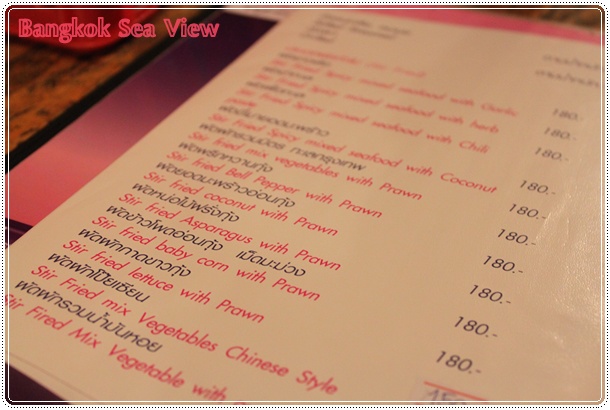 Bangkok Sea View
Spicy mixed seafood with Garlic 180.-
Fried Spicy mixed seafood with herb 180.-
Fried Spicy mixed seafood with Chili 180.-
Stir Fried Spicy mixed seafood with Coconut 180.-
ผัดผักรวมมิตร ทะเลกรุงเทพ
Stir fried mix vegetables with Prawn 180.-
ผัดพริกหวานกุ้ง
Stir fried Bell Pepper with Prawn 180.-
ผัดยอดมะพร้าวอ่อนกุ้ง
Stir fried coconut with Prawn 180.-
ผัดหน่อไม้ฝรั่งกุ้ง
Stir fried Asparagus with Prawn 180.-
ผัดข้าวโพดอ่อนกุ้ง เม็ดมะม่วง
Stir fried baby corn with Prawn 180.-
ผัดผักกาดขาวกุ้ง
Stir fried lettuce with Prawn 180.-
ผัดผักโป๊ยเซียน
Stir Fried mix Vegetables Chinese Style
ผัดผักรวมน้ำมันหอย
Stir Fired Mix Vegetable with